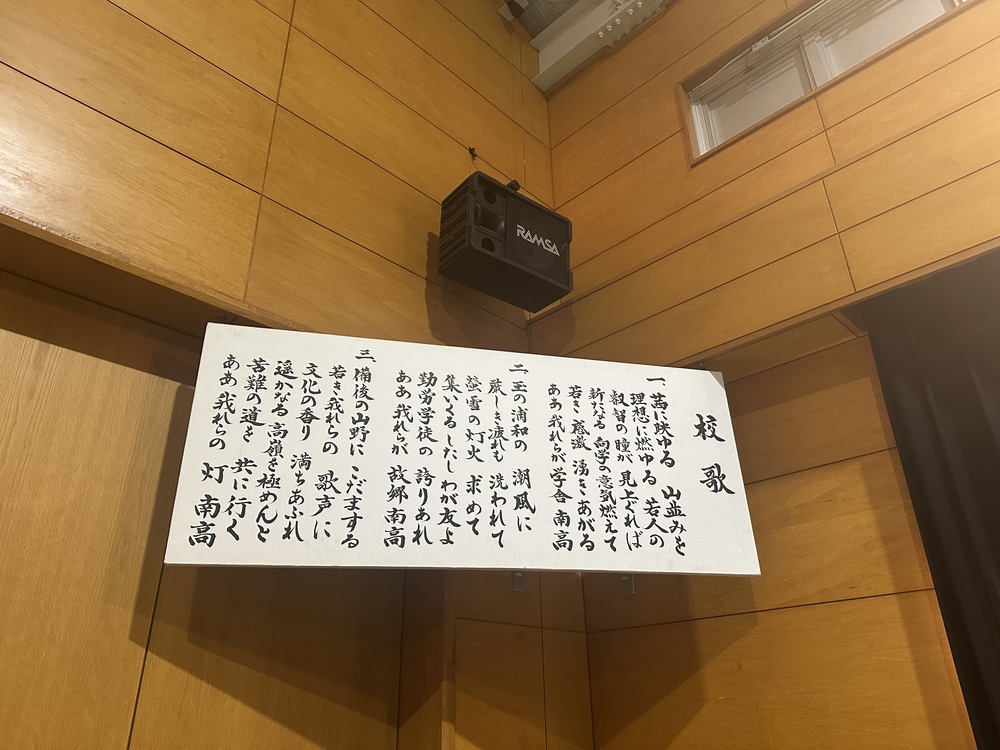 RAMSA
校歌
一、茜に映ゆる 山並みを
理想に燃ゆる 若人の
叡智の瞳が 見上ぐれば
新たなる 向学の意気燃えて
若き感激 湧きあがる
ああ 我れらが学舎 南高
二、玉の浦和の 潮風に
厳しき波れも 洗われて
螢雪の灯火 求めて
集いくる したしわが友よ
勤労学徒の 誇りあれ
ああ 我れらが 故郷 南高
三、備後の山野に こだまする
若き我れらの 歌声に
文化の香り 満ちあふれ
遥かなる 高嶺を極めんと
苦難の道を 共に行く
ああ 我れらの 灯 南高